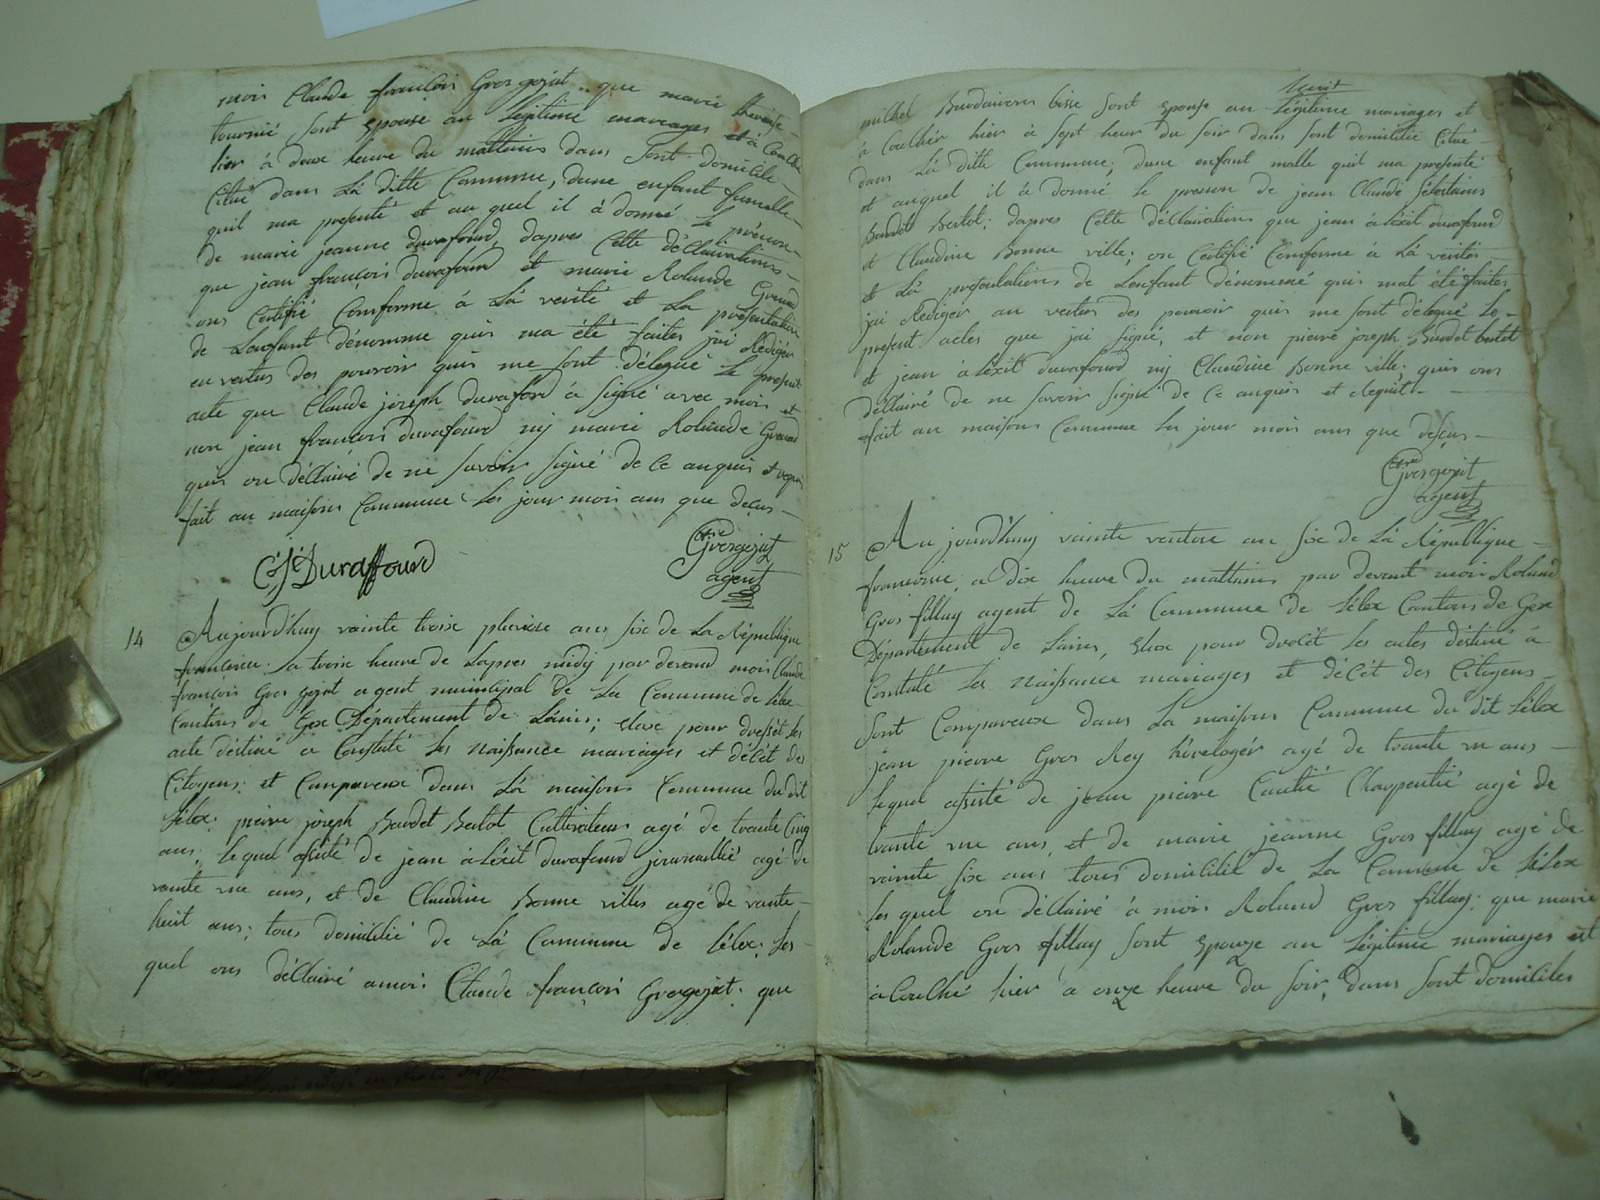 moi Claude françois Gros gojat .. que marie therese
tournié sont epouse au Légitimé mariages et à Couché
hier à deux heure du mattains dans sont domicile
Citué dans La ditte Commune, dune enfant fumelle
quil ma presenté et au quel il à donné le prénom
de marie jeanne durafourd, dapres Cette déclairations
que jean françois durafourd et marie Rolande Grenard
ons Certifié Comforme à Là verité et La presentation
de Lenfant dénommé quis ma été faites jai Rédigér
en vertus des pouvoir quis me sont délegué le present
acte que Claude joseph durafourd à signé avec moi et
non jean françois durafourd nÿ marie Rolande Grenard
quis on déllairé de ne savoir signé de Ce anquis et requis
fait au maisons Commune Les jour mois ans que deçus
C J Duraffourd
Grosgojat
agent
14 Aujourd'huy vainte troise pluviose ans six de La République
françoise. a troise heure de Lapres midÿ par devand moi Claude
françois Gros gojat agent municipal de La Commune de Lélex
Cantons de Gex Département de Lains; elue pour dressét les
acte déstiné a Constaté Les naissance mariages et décét des
Citoyens; et Comparence dans Là maisons Commune du dit
Lélex; pierre joseph Baudet Bertot Cultivateur agé de trante Cinq
ans; Le quel assisté de jean àléxit durafourd journaillié agé de
vainte un ans, et de Claudine Bonne villes agé de vainte
huit ans; tous domicilié de Là Commune de Lélex; Les
quel ons déllairé a moi Claude françois Grosgojat que
michel Burdairons bisse sont epouse au Légitime mariages et
à Couchée hier à sept heur du soir dans sont domicilié Citué
dans Là ditte Commune; dune enfant malle quil ma presenté
et auquel il à donné le prenom de jean Claude Sébastiains
Baudet Bertot; dapres Cette déclairations que jean àléxit durafourd
et Claudine Bonne ville; on Certifié Comforme à Là verités
et Là presentations de Lenfant dénommé quis mat été faites
jai Rédiger au vertus des pouvoir quis me sont délegué Le
present actes que jai signé, et non pierre joseph Baudet bertot
et jean àléxit durafourd nÿ Claudine Bonne ville; quis ons
déllairé de ne savoir signé de Ce anquis et Requis
fait au maisons Commune Les jour mois ans que desçus
Grosgojat
agent
15 Au jourd'huy vainte ventose an six de Là République
françoise, a dix heure du mattains par devant moi Roland
Gros fillay agent de Là Commune de Lélex Cantons de Gex
Département de Lains, elue pour drécét les actes déstiné à
Constaté Les naissance mariages et décét des Citoyens
sont Compareuse dans La maisons Commune du dit Lélex
jean pierre Gros Rey horeloger agé de trante un ans
Lequel assisté de jean pierre Cautié Charpentié agé de
trante un ans, et de marie jéanne Gros fillay agé de
vainte six ans tous domicilié de La Commune de Lélex
Les quel on déllairé à moi Roland Gros fillay; que marie
Rolande Gros fillay sont epouze au Légitime mariages est
à Couché hier à onze heure du soir, dans sont domiciles